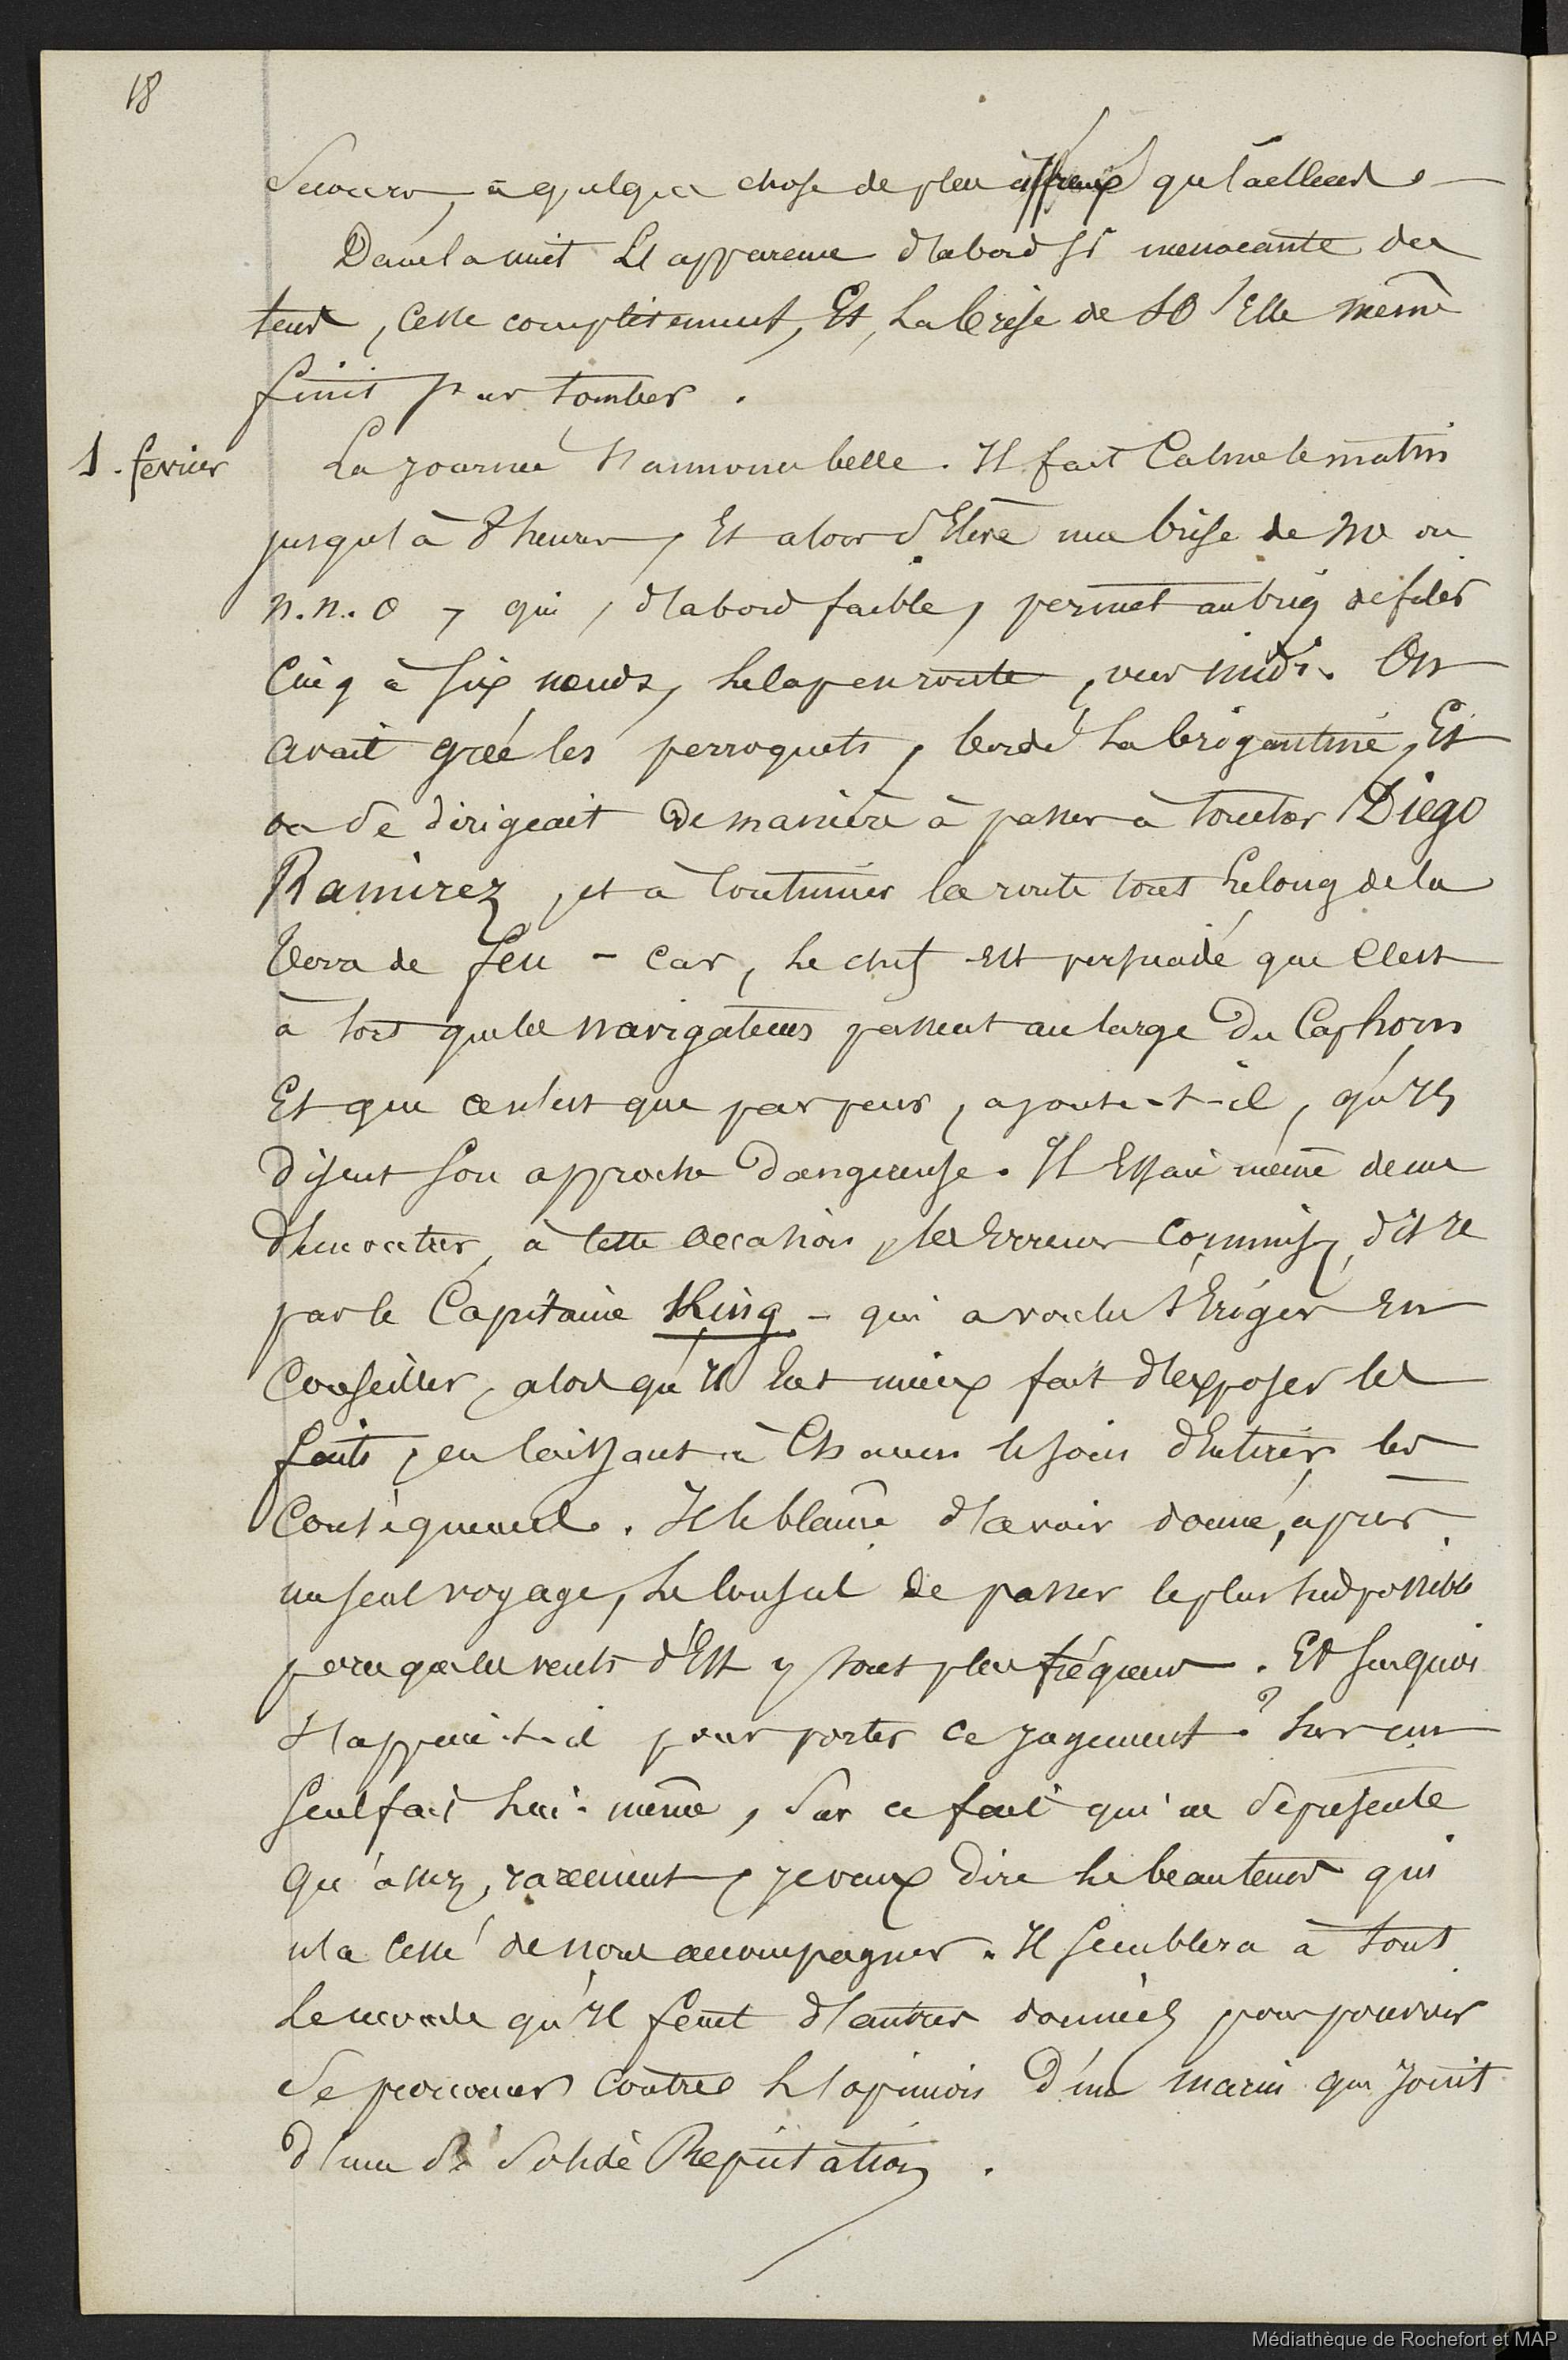 18
secours, a quelque chose de plus affreux qu'ailleurs. —
Dans la nuit L'apparence d'abord si menacante du
tems, cesse complètement, Et, la brise de SO Elle même
finit par tomber.
1. fevrier La journée s'annonce belle. Il fait Calme le matin
jusqu'à 8 heures, Et alors s'Elève une brise de NO ou
n.n.o, qui, d'abord faible, permet au brig de filer
Cinq à six nœuds, le cap en route, vers midi. On
avait gréé les perroquets, bordé la brigantine, Et
on se dirigeait de manière à passer à toucher Diego
Ramirez, et à Continuer la route tout le long de la
Terre de feu - car, le chef est persuadé que c'est
à tort que les navigateurs passent au large du Cap horn
Et que ce n'est que par peur, ajoute-t-il, qu'ils
disent son approche dangereuse. Il Essaie même de me
démontrer, à cette occasion, les Erreurs commises, dit il
par le Capitaine King - qui a voulu s'Eriger En
Conseiller, alors qu'il Eut mieux fait d'exposer les
faits, en laissant à Chacun le soin d'En tirer les
Conséquences. Il le blâme d'avoir donné, après
un seul voyage, le Conseil de passer le plus sud possible
parce que les vents d'Est y sont plus fréquens. Et sur quoi
s'appuie-t-il pour porter ce jugement? Sur un
seul fait lui-même, sur ce fait qui ne se présente
qu'assez rarement, je veux dire le beau tems qui
n'a cessé de nous accompagner. Il semblera à tout
le monde qu'il faut d'autres données pour pouvoir
se prononcer contre L'opinion d'un marin qui jouit
d'une si solide Réputation.
Médiathèque de Rochefort et MAP